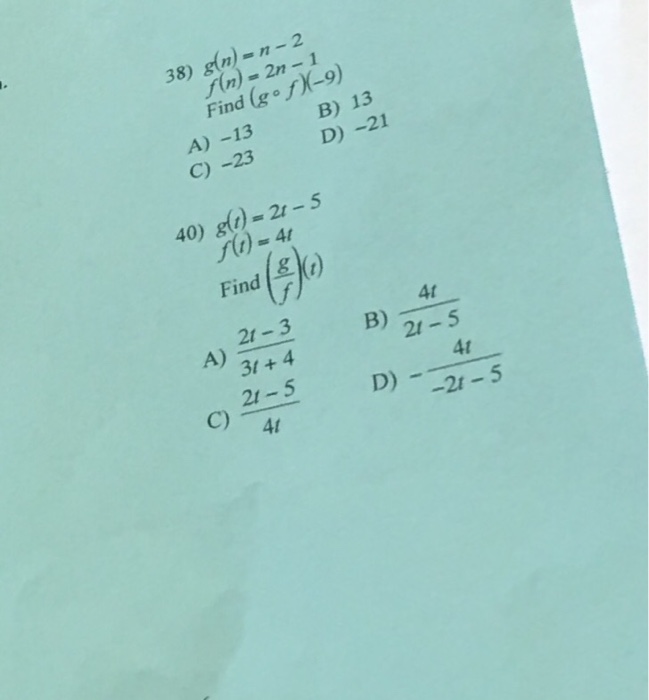 38) g(n) = n − 2
f(n) = 2n − 1
Find (g ∘ f)(−9)
A) −13 B) 13
C) −23 D) −21
40) g(t) = 2t − 5
f(t) = 4t
Find (g/f)(t)
A) (2t − 3)/(3t + 4) B) 4t/(2t − 5)
C) (2t − 5)/4t D) − 4t/(−2t − 5)